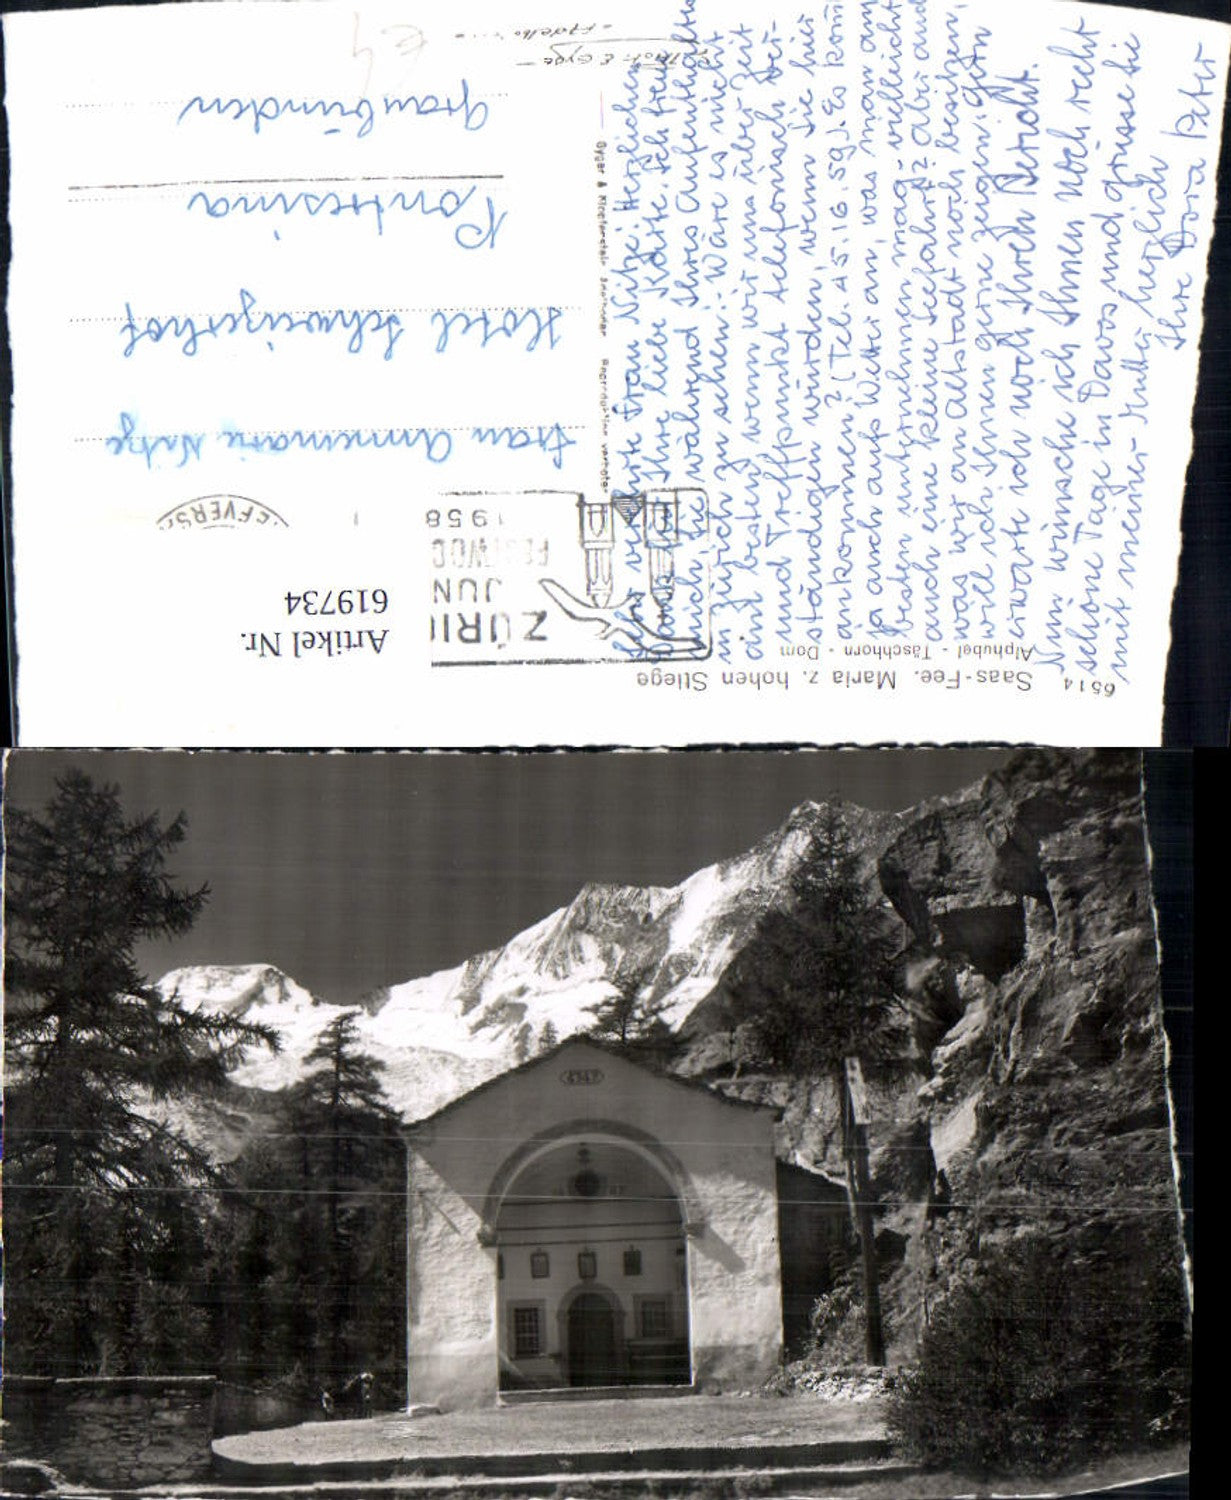 6514
Saas-Fee. Maria z. hohen Stiege
Alphubel - Täschhorn - Dom
Sehr verehrte Frau Nitze! Herzlichen
Dank für Ihre liebe Karte. Ich freue
mich Sie während Ihres Aufenthaltes
in Zürich zu sehen! Wäre es nicht
am besten wenn wir uns über Zeit
und Treffpunkt telefonisch ver-
ständigen würden, wenn Sie hier
ankommen? (Tel. 45.16.59). Es kommt
ja auch aufs Wetter an, was man am
besten unternehmen mag - vielleicht
auch eine kleine Seefahrt? Aber auch
was wir an Altstadt noch besitzen,
will ich Ihnen gerne zeigen. Gern
erwarte ich noch Ihren Bericht.
Nun wünsche ich Ihnen noch recht
schöne Tage in Davos und grüsse Sie
mit meiner Mutter herzlich
Ihre Dora Peter
ZÜRI
JUN
1958
Artikel Nr.
619734
Frau Annemarie Nitze
Hotel Schweizerhof
Pontresina
Graubünden
Gyger & Klopfenstein Adelboden
€4
1747